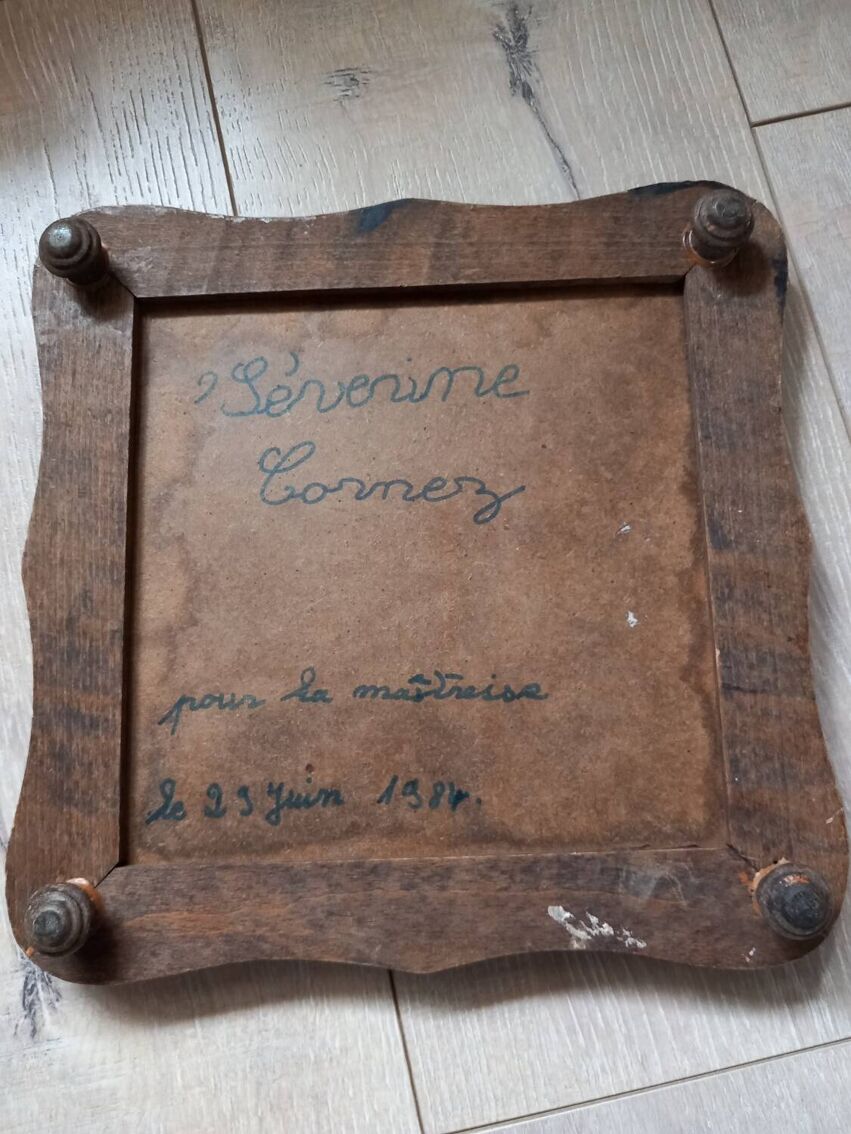 Séverine
Cornez
pour la maîtresse
le 29 Juin 1984.